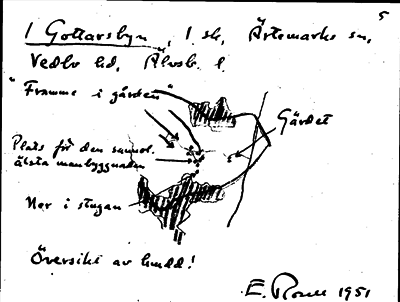 5
1 Gottarsbyn, 1 sk, Ärtemarks sn,
Vedbo hd, Älvsb. l.
"Framme i gården"
Gärdet
Plats för den sannol.
älsta manbyggnaden
Ner i stugan
Översikt av
1951